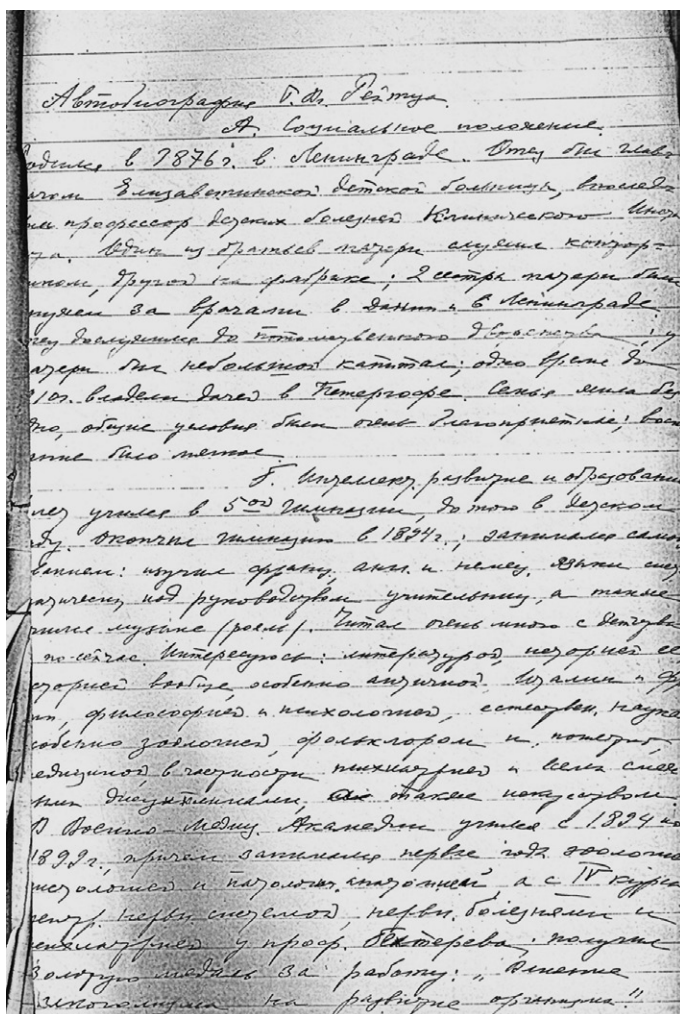 Автобиография Г. Вл. Рейтца.
А. Социальное положение.
одился в 1876 г. в Ленинграде. Отец был глав-
рачом Елизаветинской детской больницы, послед-
профессор детских болезней Клинического Инсти
та. Один из братьев матери служил контор-
иком, другой на фабрике; 2 сестры матери были
мужем за врачами в Дании и в Ленинграде.
тец дослужился до потомственного дворянства; у
атери был небольшой капитал; одно время до
10 г. владели дачей в Петергофе. Семья жила
но, общие условия были очень благоприятные; вос
ание было мягкое.
Б. Интеллект. развитие и образовани
лет учился в 5ой гимназии, до того в детском
ду. Окончил гимназию в 1894 г.; занимался само
ванием: изучил франц., англ. и немец. языки сист
атически под руководством учительниц, а также
учился музыке (рояль). Читал очень много с детства
по сейчас. Интересуюсь: литературой, историей ее
сторией вообще, особенно античной. Италии и Фр
ии, философией и психологией, естествен. наука
собенно зоологией, фольклором и
едициной, в частности психиатрией и всеми смеж
ными дисциплинами, также искусством.
В Военно-Медиц. Академии учился с 1894 по
1899 г., причем занимался первые года зоологией
истологией и патологич. анатомией, а с IV курса
центр. нервн. системой, нервн. болезнями и
психиатрией у проф. Бехтерева; получил
золотую медаль за работу: „Влияние
алкоголизма на развитие организма".